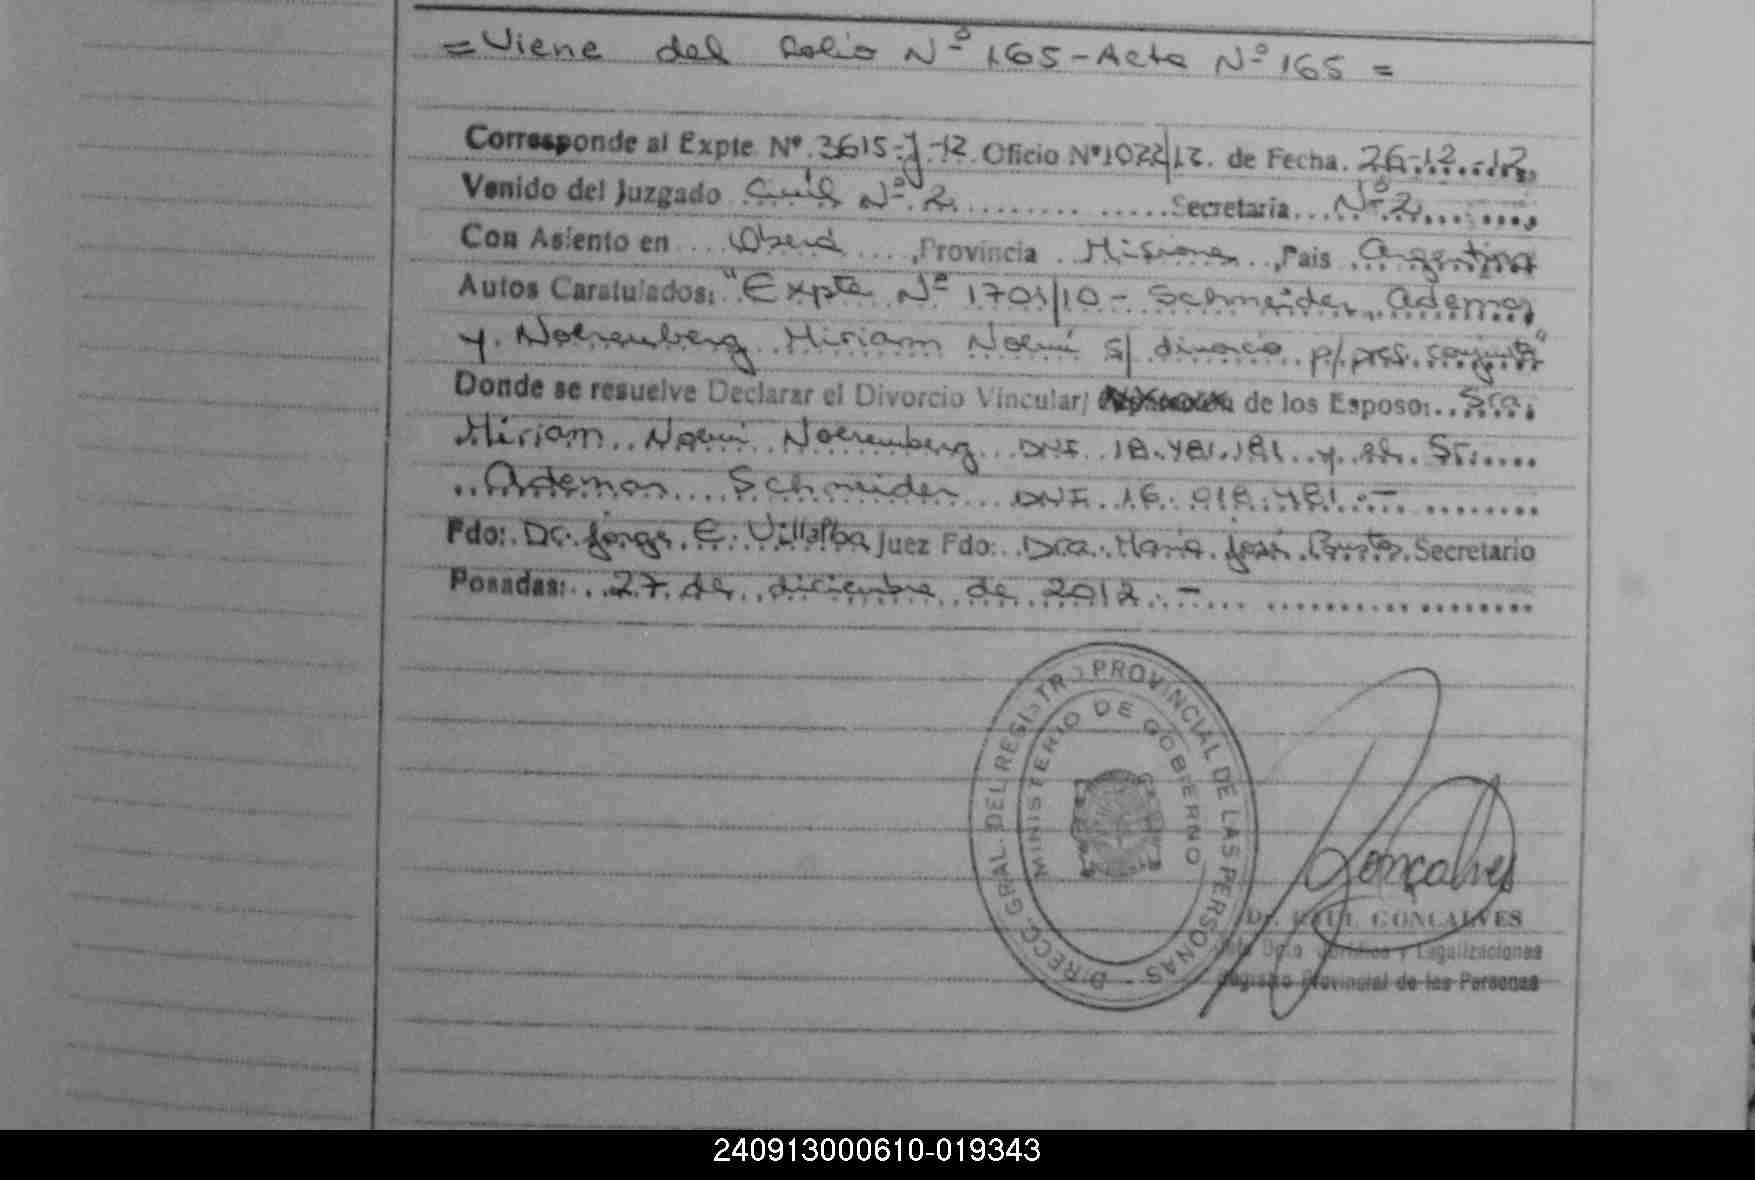 = Viene del folio Nº 165 - Acta Nº 165 =
Corresponde al Expte Nº 3615-J-12 Oficio Nº 1022/12. de Fecha. 26-12-12,
Venido del Juzgado Civil Nº 2 Secretaria Nº 2
Con Asiento en Oberá, Provincia Misiones, Pais Argentina
Autos Caratulados: "Expte Nº 1701/10 - Schneider, Ademar
y Noerenberg Miriam Noemí s/ divorcio p/ pres. conjunta"
Donde se resuelve Declarar el Divorcio Vincular/ de los Esposo: Sra.
Miriam Noemí Noerenberg DNI 18.781.181 y Sr.
Ademar Schneider DNI 16.018.481.-
Fdo: Dr. Jorge E. Villalba Juez Fdo: Dra. María José Secretario
Posadas: 27 de diciembre de 2012.-
DIRECC. GRAL. DEL REGISTRO PROVINCIAL DE LAS PERSONAS -
MINISTERIO DE GOBIERNO
Gonçalves
Dr. RAUL GONCALVES
Jurídico y Legalizaciones
Registro Provincial de las Personas
240913000610-019343